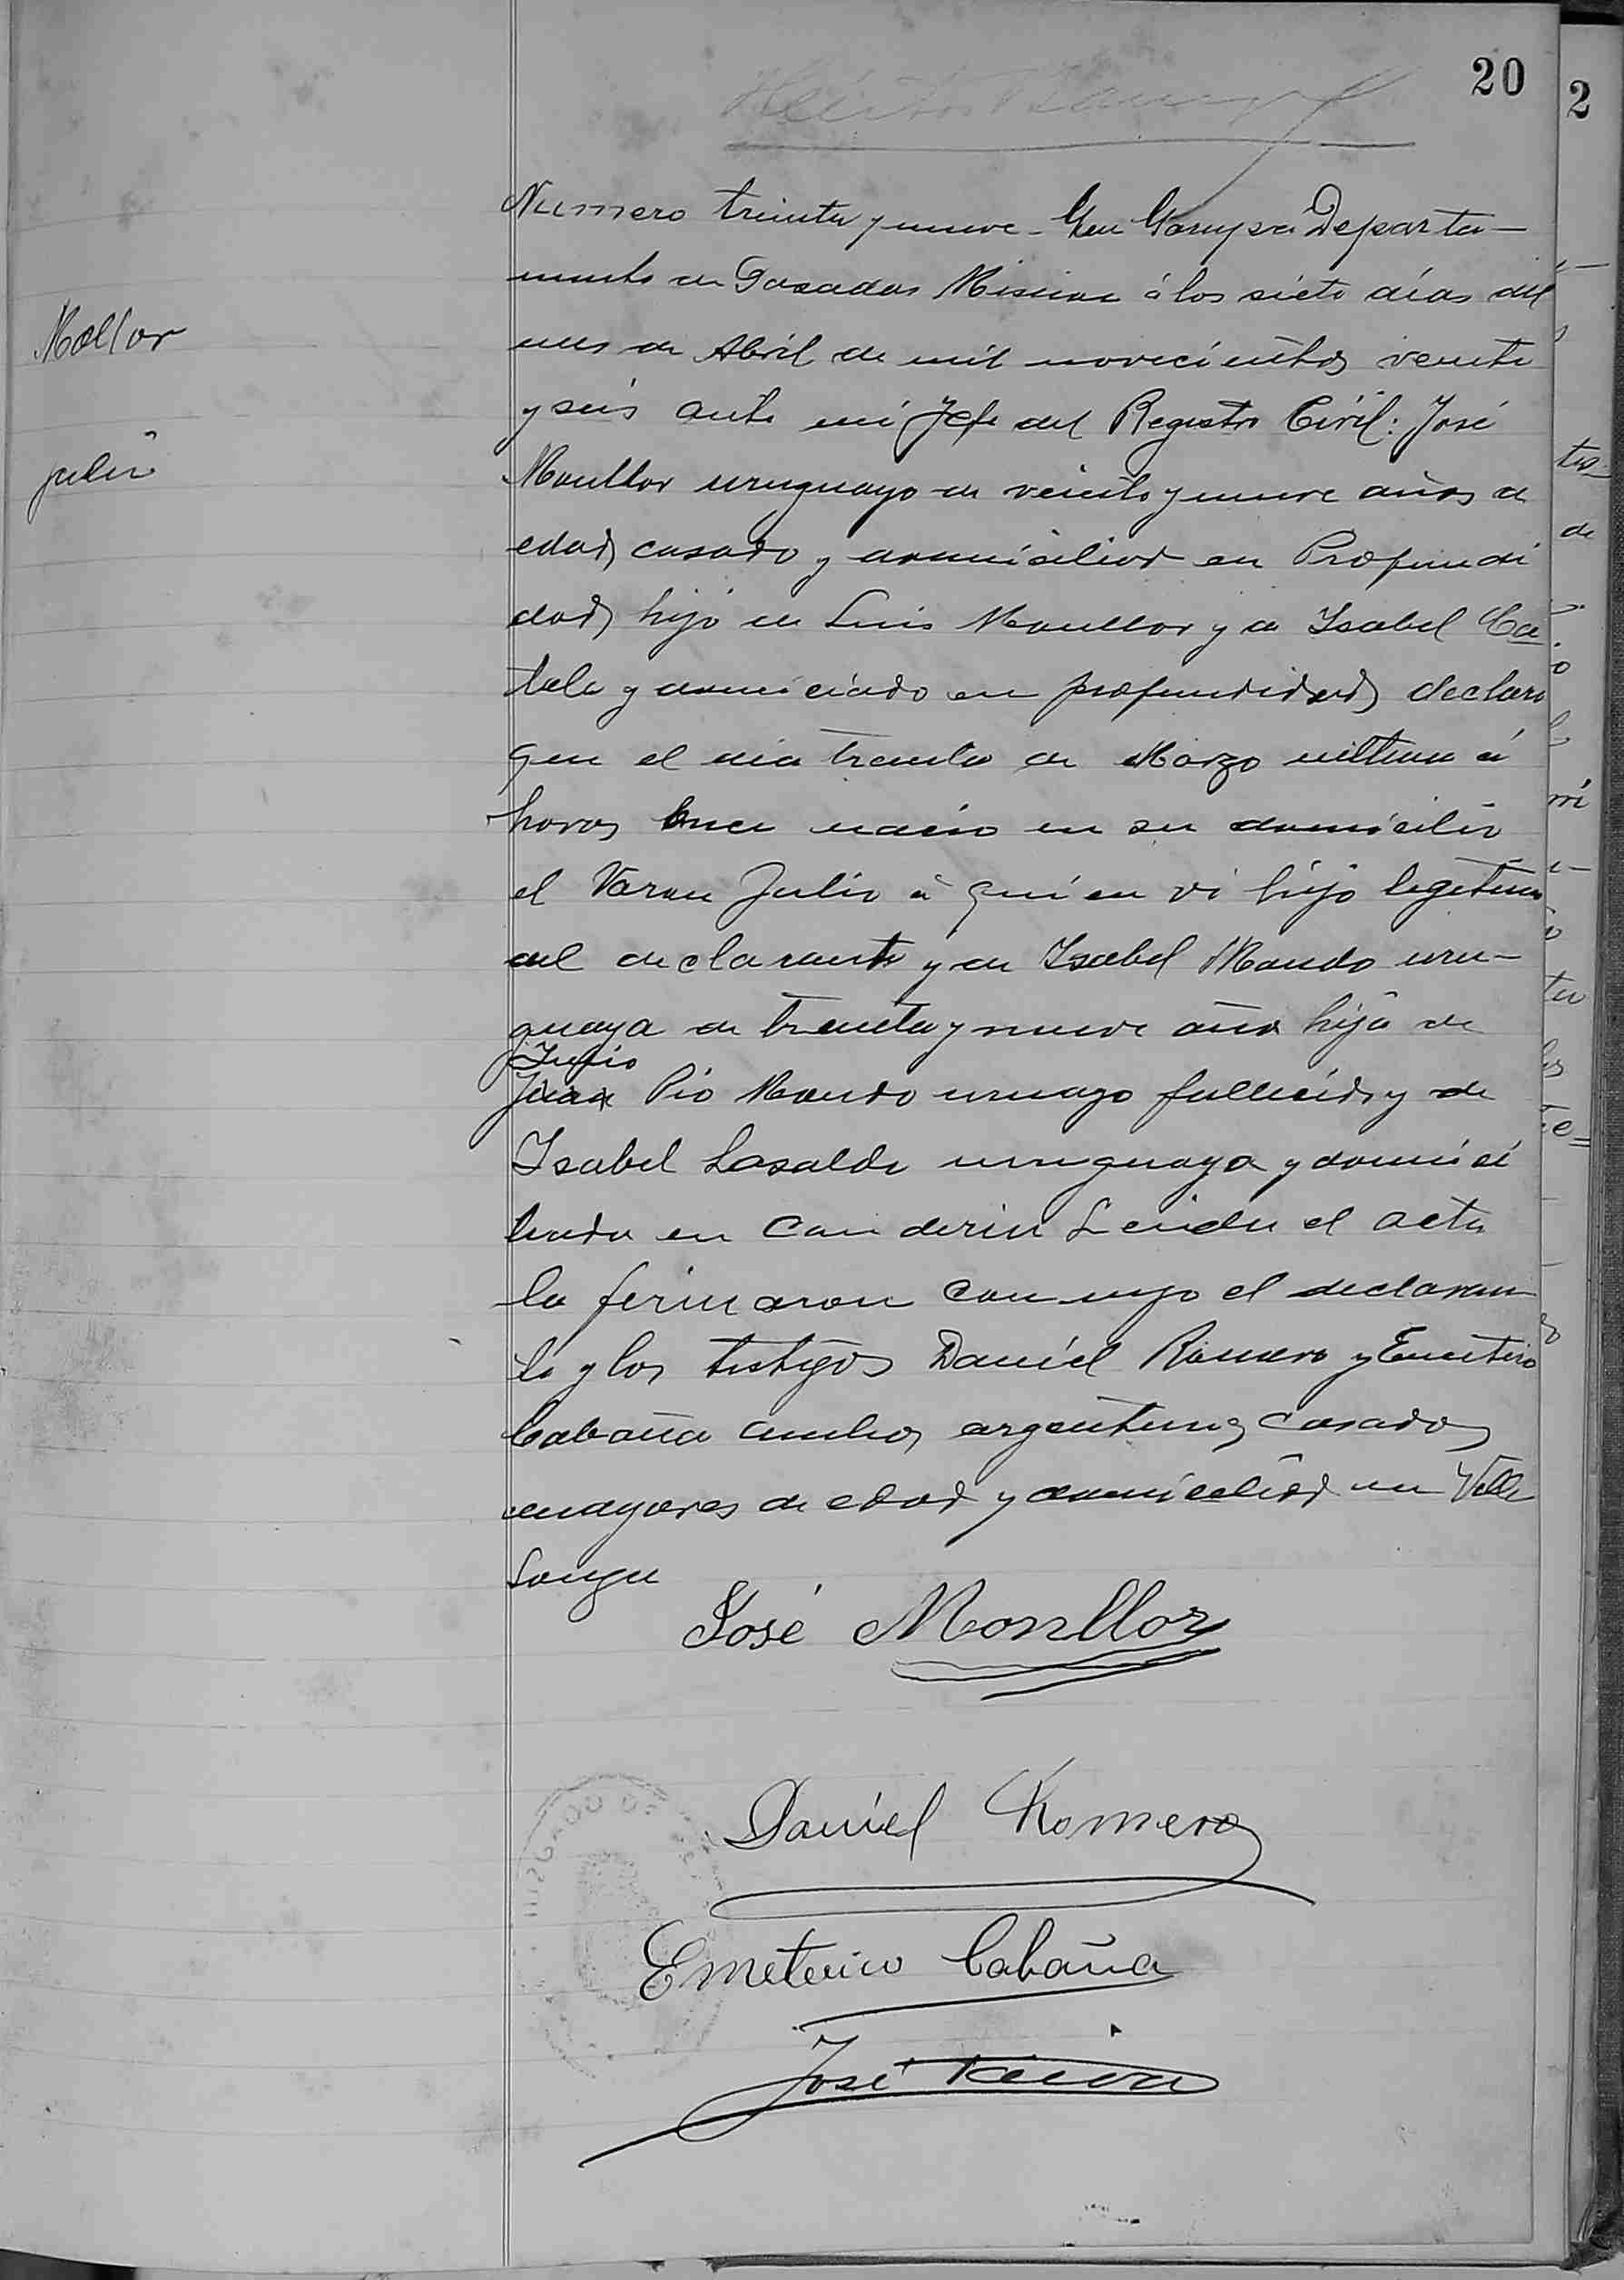 20
2
Numero treinta y nueve - En Garupa Departa-
mento de Posadas Misiones á los siete días del
mes de Abril de mil novecientos veinte
y seis ante mi Jefe del Registro Civil: José
Moullor uruguayo de veinte y nueve años de
edad casado y domiciliado en Profundi
dad hijo de Luis Moullor y de Isabel Ca
tala y domiciado en profundidad declaro
que el dia treinta de Marzo ultimo á
horas once nacio en su domicilio
el Varon Julio á quien vi hijo legitimo
del declarante y de Isabel Mando uru-
guaya de treinta y nueve años hija de
Juan Pio Mando uruayo fallecido y de
Isabel Lasalde uruguaya y domici
liada en Can deria Leida el acta
la firmaron conmigo el declaran
te y los testigos Daniel Romero y Emeterio
Cabaña ambos argentinos casados
mayores de edad y domiciliad en Villa
Longa
Mollor
julio
José Monllor
Daniel Romero
Emeterico Cabaña
José
JUZGADO DE